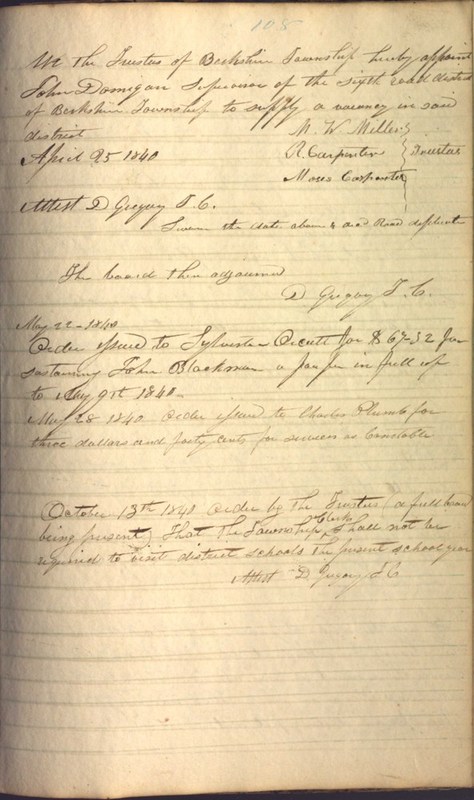 108
We the Trustees of Berkshire Township hereby appoint
John Dornigan Supervisor of the sixth road district
of Berkshire Township to supply a vacancy in said
district
April 25 1840
M. W. Miller
R. Carpenter } Trustees
Moses Carpenter
Attest D Gregory T. C.
the date above & said Road
The board then adjourned
D Gregory T. C.
May 22 - 1840
Order issued to Sylvester for $ 67-32 for
sustaining John Blackman a in full up
to May 9th 1840
May 28 1840 Order issued to Charles Plumb for
three dollars and forty cents for services as Constable
October 13th 1840 Order by the Trustees (a full board
being present) That the Township Clerk Shall not be
required to visit district schools the present school year
Attest D Gregory T C